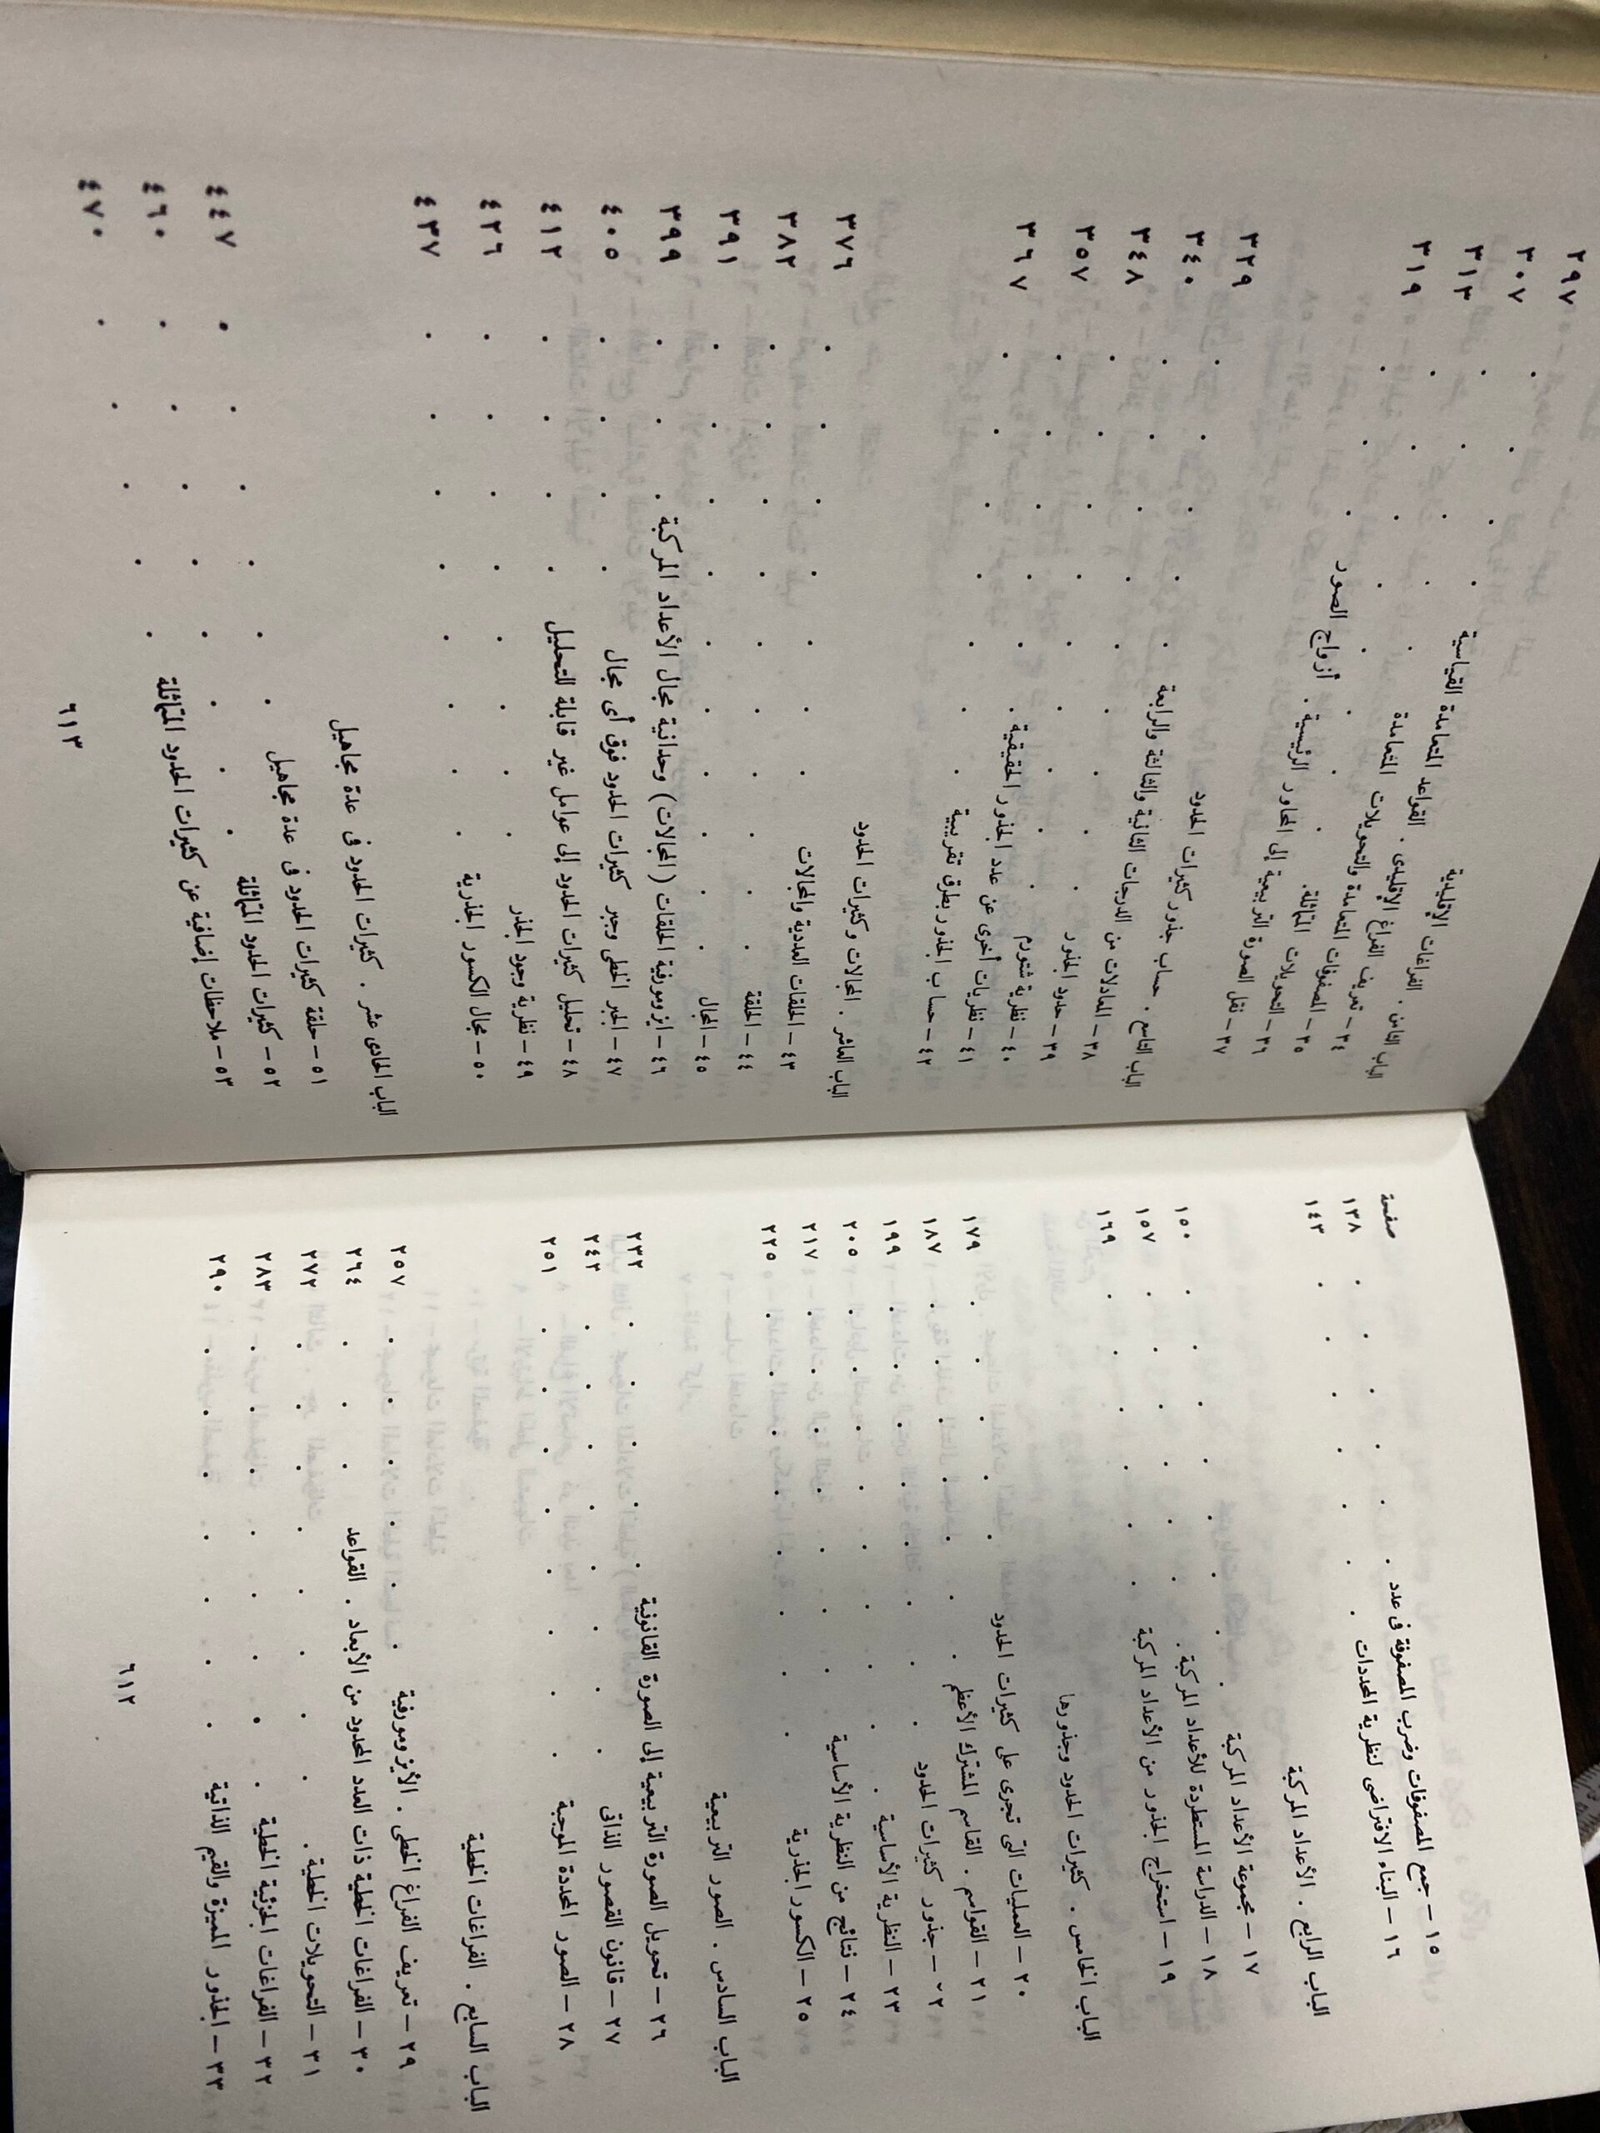 صفحة
١٥ – جمع المصفوفات وضرب المصفوفة فى عدد . . . . ١٣٨
١٦ – البناء الافتراضى لنظرية المحددات . . . . . ١٤٣
الباب الرابع . الأعداد المركبة
١٧ – مجموعة الأعداد المركبة . . . . . . . ١٥٠
١٨ – الدراسة المستطردة للأعداد المركبة . . . . . . ١٥٧
١٩ – استخراج الجذور من الأعداد المركبة . . . . . ١٦٩
الباب الخامس . كثيرات الحدود وجذورها
٢٠ – العمليات التى تجرى على كثيرات الحدود . . . . . ١٧٩
٢١ – القواسم . القاسم المشترك الأعظم . . . . . . ١٨٧
٢٢ – جذور كثيرات الحدود . . . . . . . ١٩٩
٢٣ – النظرية الأساسية . . . . . . . . ٢٠٥
٢٤ – نتائج من النظرية الأساسية . . . . . . ٢١٧
٢٥ – الكسور الجذرية . . . . . . . . ٢٢٥
الباب السادس . الصور التربيعية
٢٦ – تحويل الصورة التربيعية إلى الصورة القانونية . . . . . ٢٣٢
٢٧ – قانون القصور الذاتى . . . . . . . . ٢٤٢
٢٨ – الصور المحددة الموجبة . . . . . . . . ٢٥١
الباب السابع . الفراغات الخطية
٢٩ – تعريف الفراغ الخطى . الأيزومورفية . . . . . . ٢٥٧
٣٠ – الفراغات الخطية ذات العدد المحدود من الأبعاد . القواعد . . . ٢٦٤
٣١ – التحويلات الخطية . . . . . . . . . ٢٧٢
٣٢ – الفراغات الجزئية الخطية . . . . . . . . ٢٨٣
٣٣ – الجذور المميزة والقيم الذاتية . . . . . . . ٢٩٠
٦١٢
الباب الثامن . الفراغات الإقليدية
٣٤ – تعريف الفراغ الإقليدى . القواعد المتعامدة القياسية . . . ٢٩٧
٣٥ – المصفوفات المتعامدة والتحويلات المتعامدة . . . . ٣٠٧
٣٦ – التحويلات المتماثلة . . . . . . . . ٣١٣
٣٧ – نقل الصورة التربيعية إلى المحاور الرئيسية . أزواج الصور . . . ٣١٩
الباب التاسع . حساب جذور كثيرات الحدود
٣٨ – المعادلات من الدرجات الثانية والثالثة والرابعة . . . . . ٣٢٩
٣٩ – حدود الجذور . . . . . . . . . ٣٤٠
٤٠ – نظرية شتورم . . . . . . . . . ٣٤٨
٤١ – نظريات أخرى عن عدد الجذور الحقيقية . . . . . . ٣٥٧
٤٢ – حساب الجذور بطرق تقريبية . . . . . . . ٣٦٧
الباب العاشر . المجالات وكثيرات الحدود
٤٣ – الحلقات العددية والمجالات . . . . . . . ٣٧٦
٤٤ – الحلقة . . . . . . . . . ٣٨٢
٤٥ – المجال . . . . . . . . . ٣٩١
٤٦ – ايزومورفية الحلقات (المجالات) وحدانية مجال الأعداد المركبة . . . ٣٩٩
٤٧ – الجبر الخطى وجبر كثيرات الحدود فوق أى مجال . . . . ٤٠٥
٤٨ – تحليل كثيرات الحدود إلى عوامل غير قابلة للتحليل . . . . ٤١٢
٤٩ – نظرية وجود الجذر . . . . . . . . ٤٢٦
٥٠ – مجال الكسور الجذرية . . . . . . . . ٤٣٧
الباب الحادى عشر . كثيرات الحدود فى عدة مجاهيل
٥١ – حلقة كثيرات الحدود فى عدة مجاهيل . . . . . . ٤٤٧
٥٢ – كثيرات الحدود المتماثلة . . . . . . . . ٤٦٠
٥٣ – ملاحظات إضافية عن كثيرات الحدود المتماثلة . . . . . ٤٧٠
٦١٣